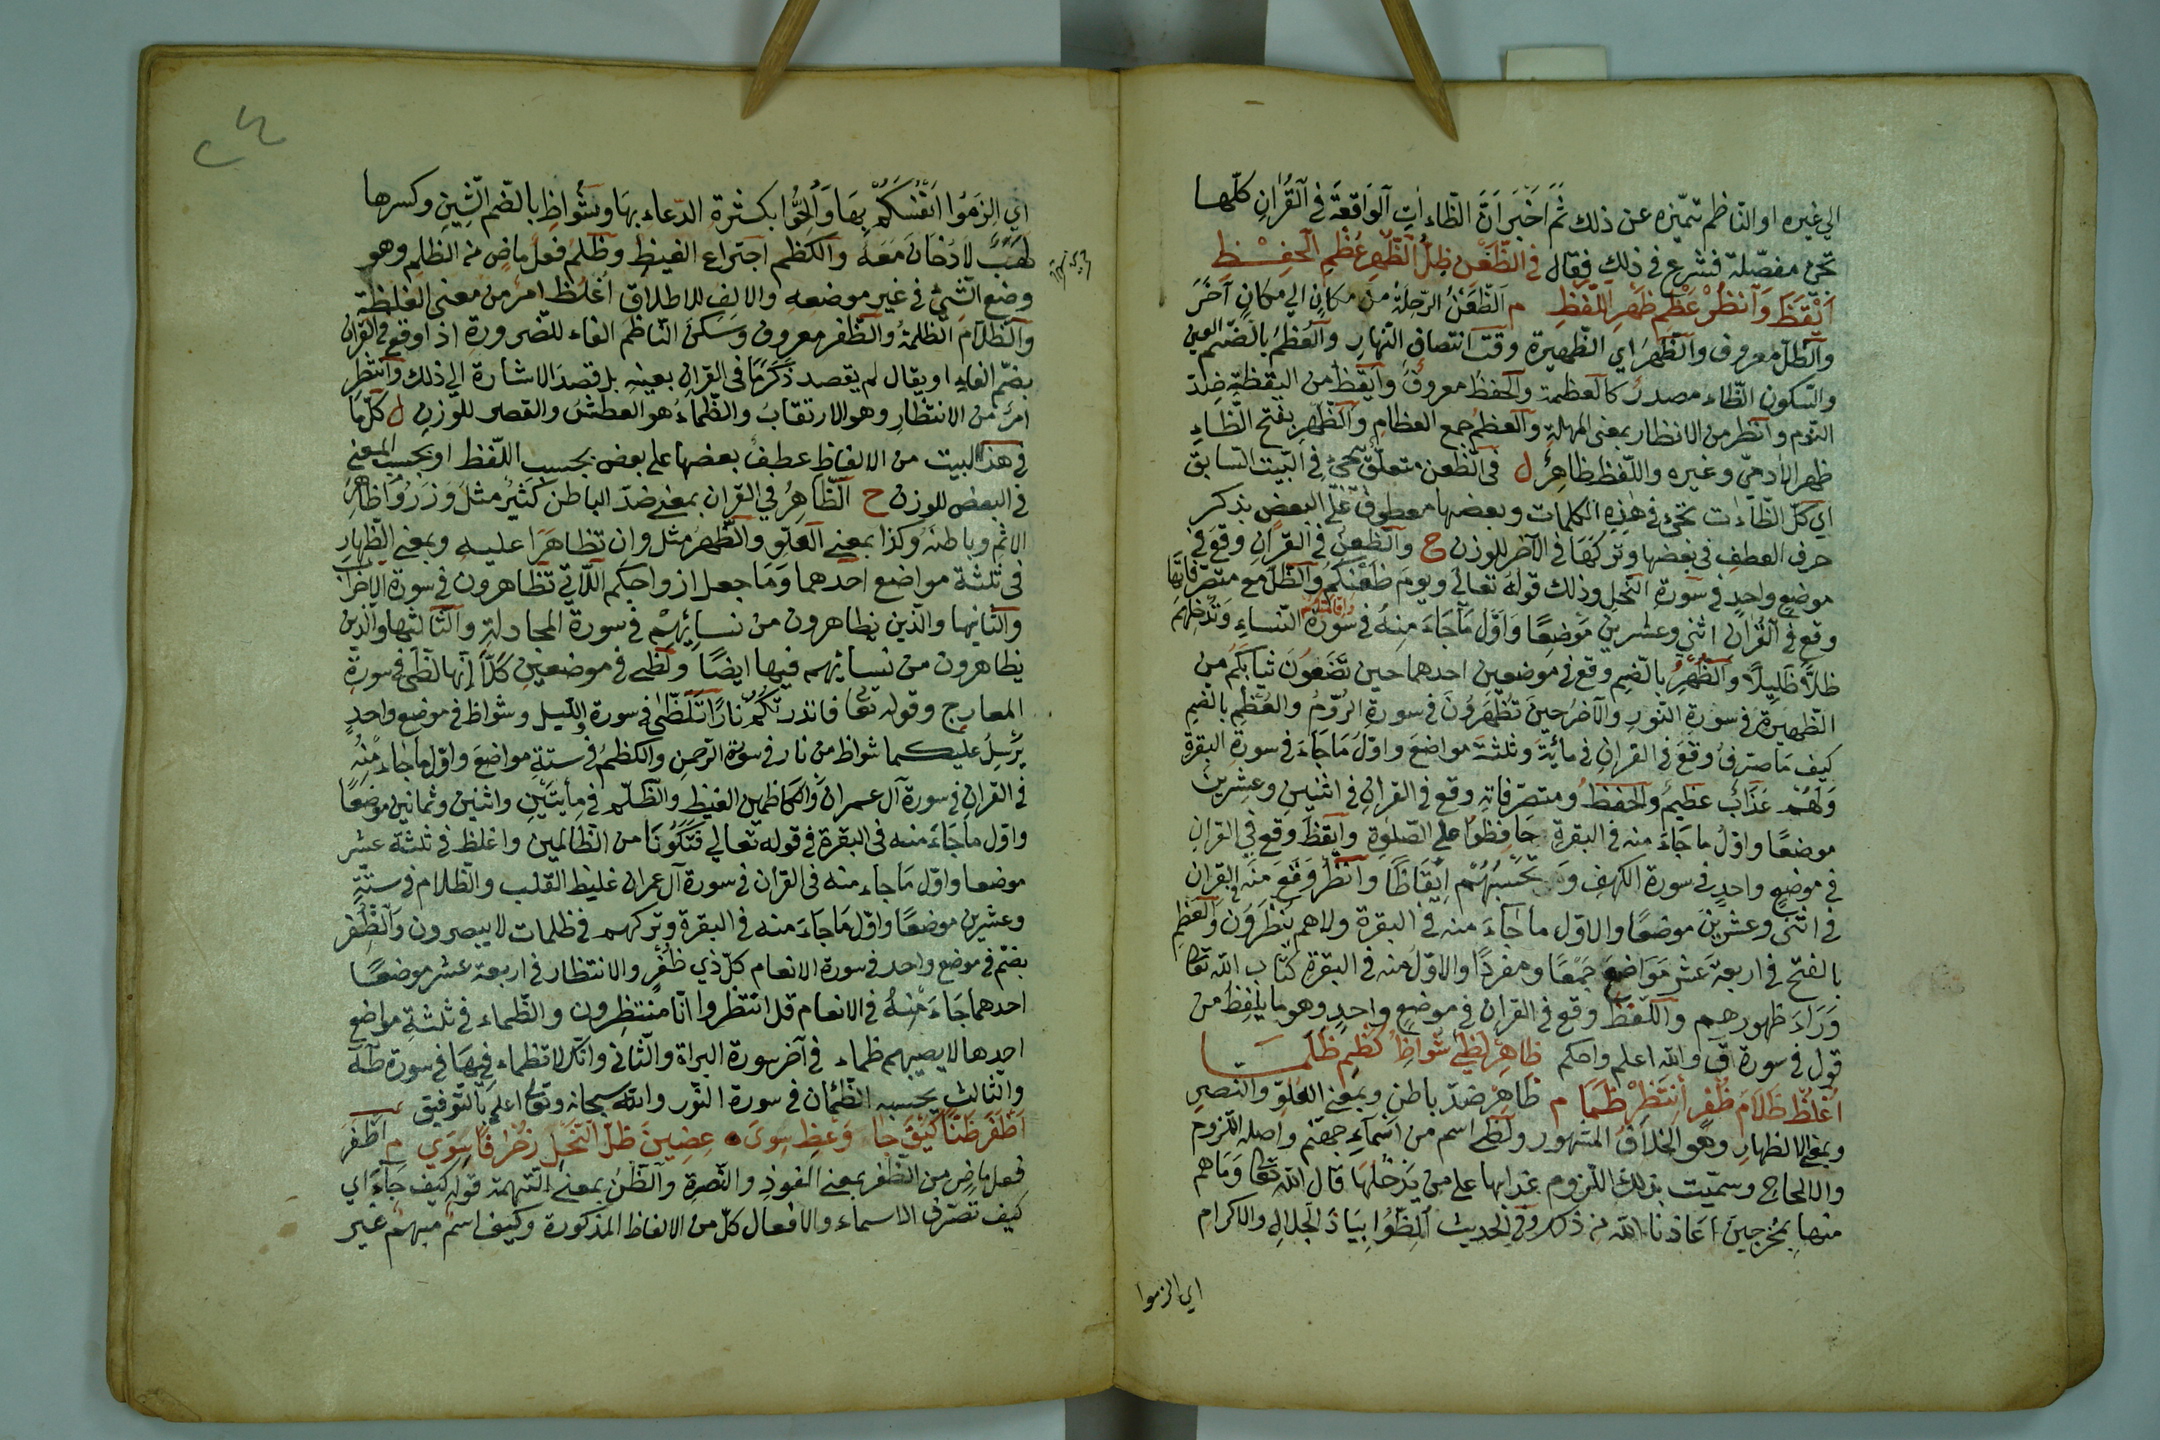 الي غيره او الناظم تميزه عن ذلك ثم اخبر ان الظاءات الواقعة في القران كلها
تجئ مفصلة فشرع في ذلك فقال في الظعن ظل الظهر عظم الحفظ
ايقظ وانظر عظم ظهر اللفظ م الظعن الرحلة من مكان الي مكان آخر
والظل معروف والظهر اي الظهيرة وقت انتصاف النهار والعظم بالضم العين
والسكون الظاء مصدر كالعظمة والحفظ معروف وايقظ من اليقظة ضد
النوم وانظر من الانظار بمعنى المهلة والعظم جمع العظام والظهر بفتح الظاء
ظهر الادمي وغيره واللفظ ظاهر ل في الظعن متعلق بتجئ في البيت السابق
اي كل الظاءات تجئ في هذه الكلمات وبعضها معطوف علي البعض بذكر
حرف العطف في بعضها وتركها في الآخر للوزن ح والظعن في القران وقع في
موضع واحد في سورة النحل وذلك قوله تعالي ويوم ظعنكم والظل مع متصرفاتها
وقع في القران اثني وعشرين موضعا واول ما جاء منه في سورة النساء وندخلهم
ظلا ظليلا والظهر بالضم وقع في موضعين احدهما حين تضعون ثيابكم من
الظهيرة في سورة النور والآخر حين تظهرون في سورة الروم والعظم بالضم
كيف ما صرف وقع في القران في مائة وثلثة مواضع واول ما جاء في سورة البقرة
ولهم عذاب عظيم والحفظ ومتصرفاته وقع في القران في اثنين وعشرين
موضعا واول ما جاء منه في البقرة حافظوا علي الصلوة وايقظ وقع في القران
في موضع واحد في سورة الكهف وتحسبهم ايقاظا وانظر وقع منه في القران
في اثني وعشرين موضعا والاول ما جاء منه في البقرة ولا هم ينظرون والعظم
بالفتح في اربعة عشر مواضع جمعا ومفردا والاول منه في البقرة كتاب الله
وراء ظهورهم واللفظ وقع في القران في موضع واحد وهو ما يلفظ من
قول في سورة ق والله اعلم واحكم ظاهر لظي شواظ كظم ظلما
اغلظ ظلام ظفر انتظر ظما م ظاهر ضد باطن وبمعني العلو والنصر
وبمعني الظهار وهو الخلاق المشهور ولظي اسم من اسماء جهنم واصله اللزوم
والالحاح وسميت بذلك للزوم عذابها علي من يدخلها قال الله تعا وما هم
منها بمخرجين اعاذنا الله من ذلك وفي الحديث الظوا بياذا الجلال والاكرام
اي الزموا
اي الزموا انفسكم بها والحوا بكثرة الدعاء بها وشواظ بالضم الشين وكسرها
لهب لا دخان معه والكظم اجتراع الغيظ وظلم فعل ماض من الظلم وهو
وضع الشئ في غير موضعه والالف للاطلاق اغلظ امر من معنى الغلظة
والظلام الظلمة والظفر معروف وسكن الناظم الفاء للضرورة اذ اوقع في القران
بضم الفاء او يقال لم يقصد ذكرها في القران بعينه بل قصد الاشارة الي ذلك وانتظر
امر من الانتظار وهو الارتقاب والظماء هو العطش والقصر للوزن ل كل ما
في هذا البيت من الالفاظ عطف بعضها علي بعض بحسب اللفظ او بحسب المعني
في البعض للوزن ح الظاهر في القران بمعني ضد الباطن كثير مثل وذروا ظاهر
الاثم وباطنه وكذا بمعني العلو والظهر مثل وان تظاهرا عليه وبمعني الظهار
في ثلثة مواضع احدهما وما جعل ازواجكم اللائي تظاهرون في سورة الاحزاب
والثانيها والذين يظاهرون من نسائهم في سورة المجادلة والثالثها والذين
يظاهرون من نسائهم فيها ايضا ولظي في موضعين كلا انها لظي في سورة
المعارج وقوله تعا فانذرتكم نارا تلظى في سورة الليل وشواظ في موضع واحد
يرسل عليكما شواظ من نار في سورة الرحمن والكظم في ستة مواضع واول ما جاء منه
في القران في سورة آل عمران والكاظمين الغيظ والظلم في مأتين واثنين وثمانين موضعا
واول ما جاء منه في البقرة في قوله تعالي فتكونا من الظالمين واغلظ في ثلثة عشر
موضعا واول ما جاء منه في القران في سورة آل عمران غليظ القلب والظلام في ستة
وعشرين موضعا واول ما جاء منه في البقرة وتركهم في ظلمات لا يبصرون والظفر
بضم في موضع واحد في سورة الانعام كل ذي ظفر والانتظار في اربعة عشر موضعا
احدهما جاء منه في الانعام قل انتظروا انا منتظرون والظماء في ثلثة مواضع
احدها لا يصيبهم ظماء في آخر سورة البراة والثاني وانك لا تظماء فيها في سورة طه
والثالث يحسبه الظمان في سورة النور والله سبحانه وتعالي اعلم بالتوفيق
اظفر ظنا كيف جا وعظ سوى عضين ظل النحل زخرفا سوي م اظفر
فعل ماض من الظفر بمعني الفوز والنصرة والظن بمعني التهمة قوله كيف جاء اي
كيف تصرف الاسماء والافعال كل من الالفاظ المذكورة وكيف اسم مبهم غير